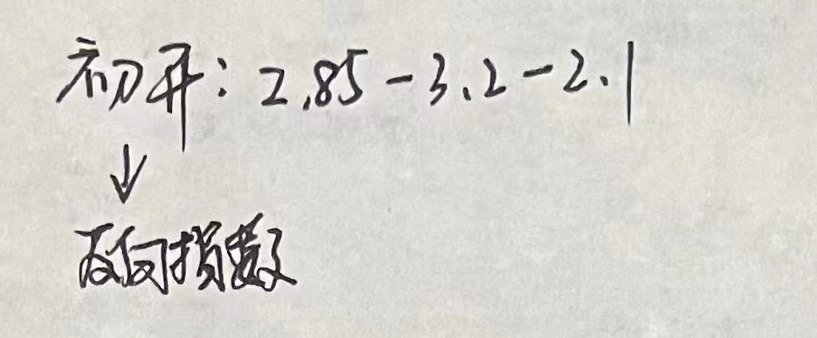 初开：2.85-3.2-2.1
↓
欧向指数